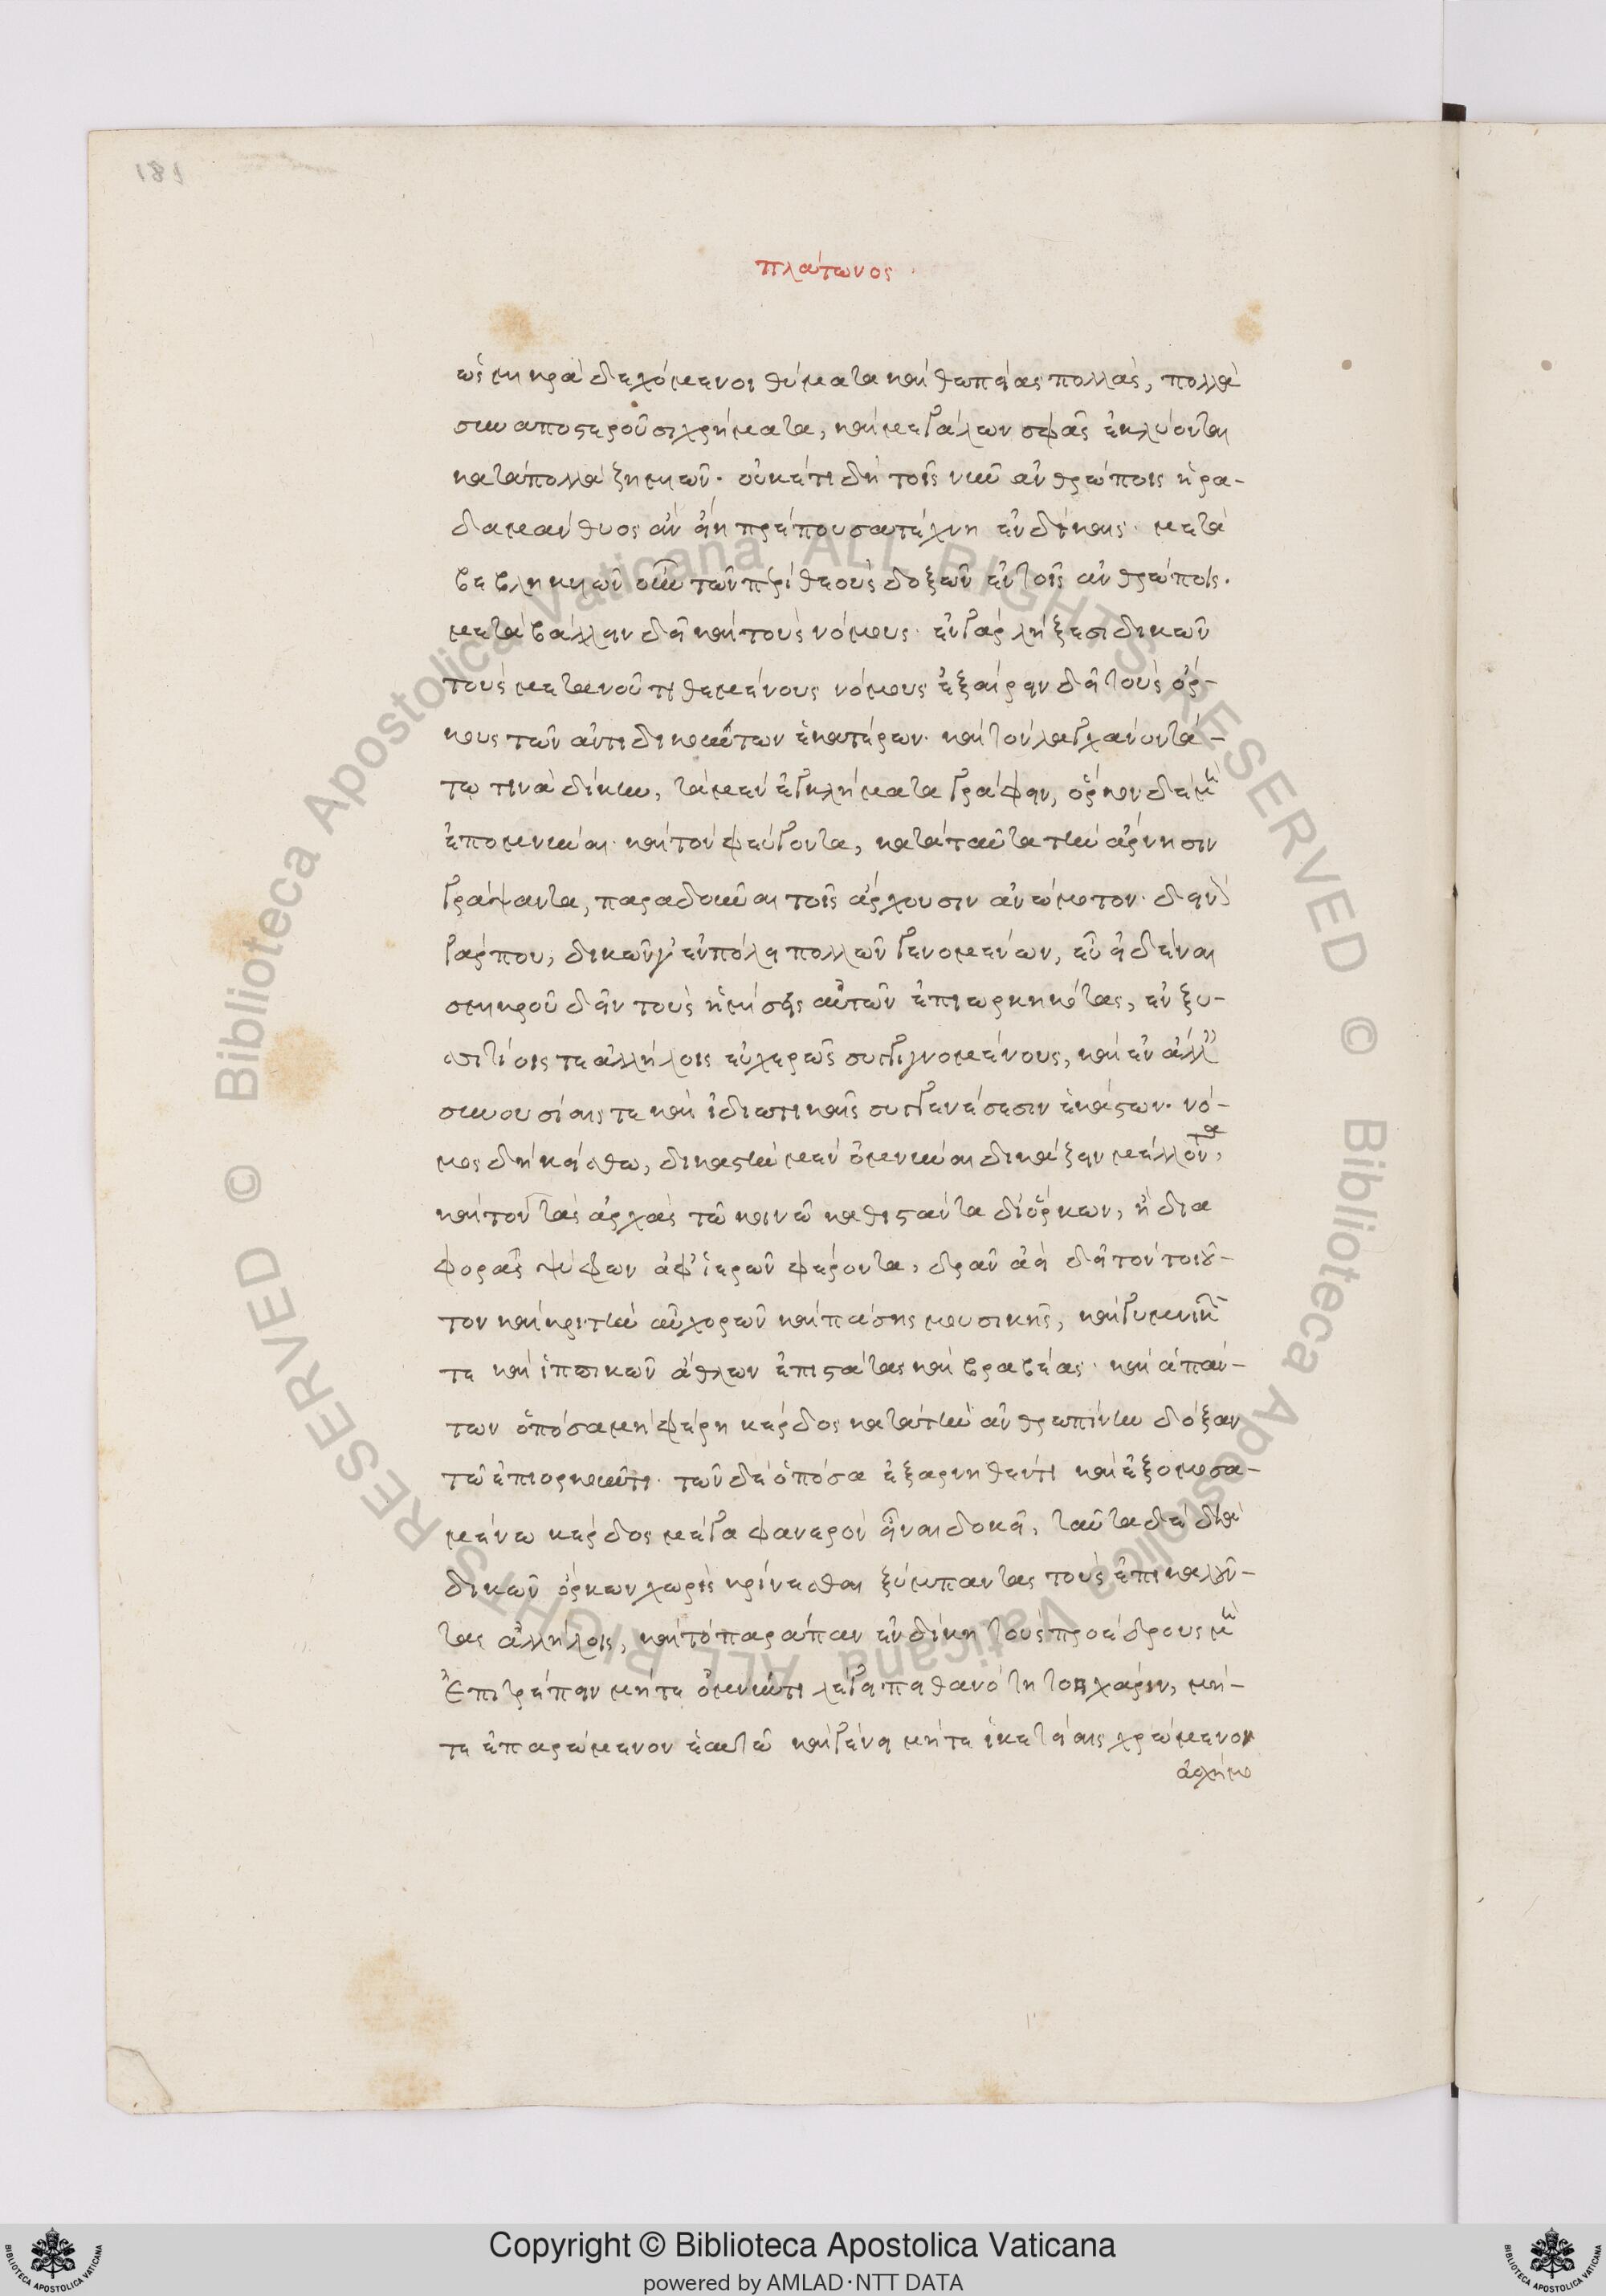 181
πλάτωνος
ὡς μικρὰ δεχόμενοι θύματα καὶ θωπείας πολλὰς, πολλὰ
συναποστεροῦσι χρήματα, καὶ μεγάλων σφᾶς ἐκλύονται
κατὰ πολλὰ ζημιῶν. οὐκέτι δὴ τοῖς νῦν ἀνθρώποις ἡ ῥα-
δαμάνθυος ἂν εἴη πρέπουσα τέχνη ἐν δίκαις. μετα
βεβληκυιῶν οὖν τῶν περὶ θεοὺς δοξῶν ἐν τοῖς ἀνθρώποις.
μεταβάλλειν δεῖ καὶ τοὺς νόμους. ἐν γὰρ λήξεσι δικῶν
τοὺς μετὰ νοῦ τιθεμένους νόμους ἐξαιρεῖν δεῖ τοὺς ὅρ-
κους τῶν ἀντιδικούντων ἑκατέρων. καὶ τὸν λαγχάνοντά
τῳ τινὰ δίκην, τὰ μὲν ἐγκλήματα γράφειν, ὅρκον δὲ μὴ
ἐπομνύναι. καὶ τὸν φεύγοντα, κατὰ ταῦτα τὴν ἄρνησιν
γράψαντα, παραδοῦναι τοῖς ἄρχουσιν ἀνώμοτον. δεινὸν
γάρ που, δικῶν γ' ἐν πόλει πολλῶν γενομένων, εὖ εἰδέναι
σμικροῦ δεῖν τοὺς ἡμίσεις αὐτῶν ἐπιωρκηκότας, ἐν ξυ-
σσιτίοις τε ἀλλήλοις εὐχερῶς συγγιγνομένους, καὶ ἐν ἄλλαις
συνουσίαις τε καὶ ἰδιωτικαῖς συγγενέσεσιν ἑκάστων. νό-
μος δὴ κείσθω, δικαστὴν μὲν ὀμνύναι δικάζειν μέλλοντα,
καὶ τὸν τὰς ἀρχὰς τῷ κοινῷ καθιστάντα δι' ὅρκων, ἢ δια
φορᾶς ψήφων ἀφ' ἱερῶν φέροντα, δρᾶν ἀεὶ δεῖ τὸν τοιοῦ-
τον καὶ κριτὴν αὖ χορῶν καὶ πάσης μουσικῆς, καὶ γυμνικῶν
τε καὶ ἱππικῶν ἄθλων ἐπιστάτας καὶ βραβέας. καὶ ἁπάν-
των ὁπόσα μὴ φέρει κέρδος κατὰ τὴν ἀνθρωπίνην δόξαν
τῷ ἐπιορκοῦντι. τῶν δὲ ὁπόσα ἐξαρνηθέντι καὶ ἐξομοσα-
μένῳ κέρδος μέγα φανερὸν εἶναι δοκεῖ, ταῦτα δὲ διὰ
δικῶν ὅρκων χωρὶς κρίνεσθαι ξύμπαντας τοὺς ἐπικαλοῦν-
τας ἀλλήλοις, καὶ τὸ παράπαν ἐν δίκῃ τοὺς προέδρους μὴ
ἐπιτρέπειν μήτε ὀμνύντι λέγειν πιθανότητος χάριν, μή-
τε ἐπαρώμενον ἑαυτῷ καὶ γένει μήτε ἱκετείαις χρώμενον
ἀσχήμο
Copyright © Biblioteca Apostolica Vaticana
powered by AMLAD·NTT DATA